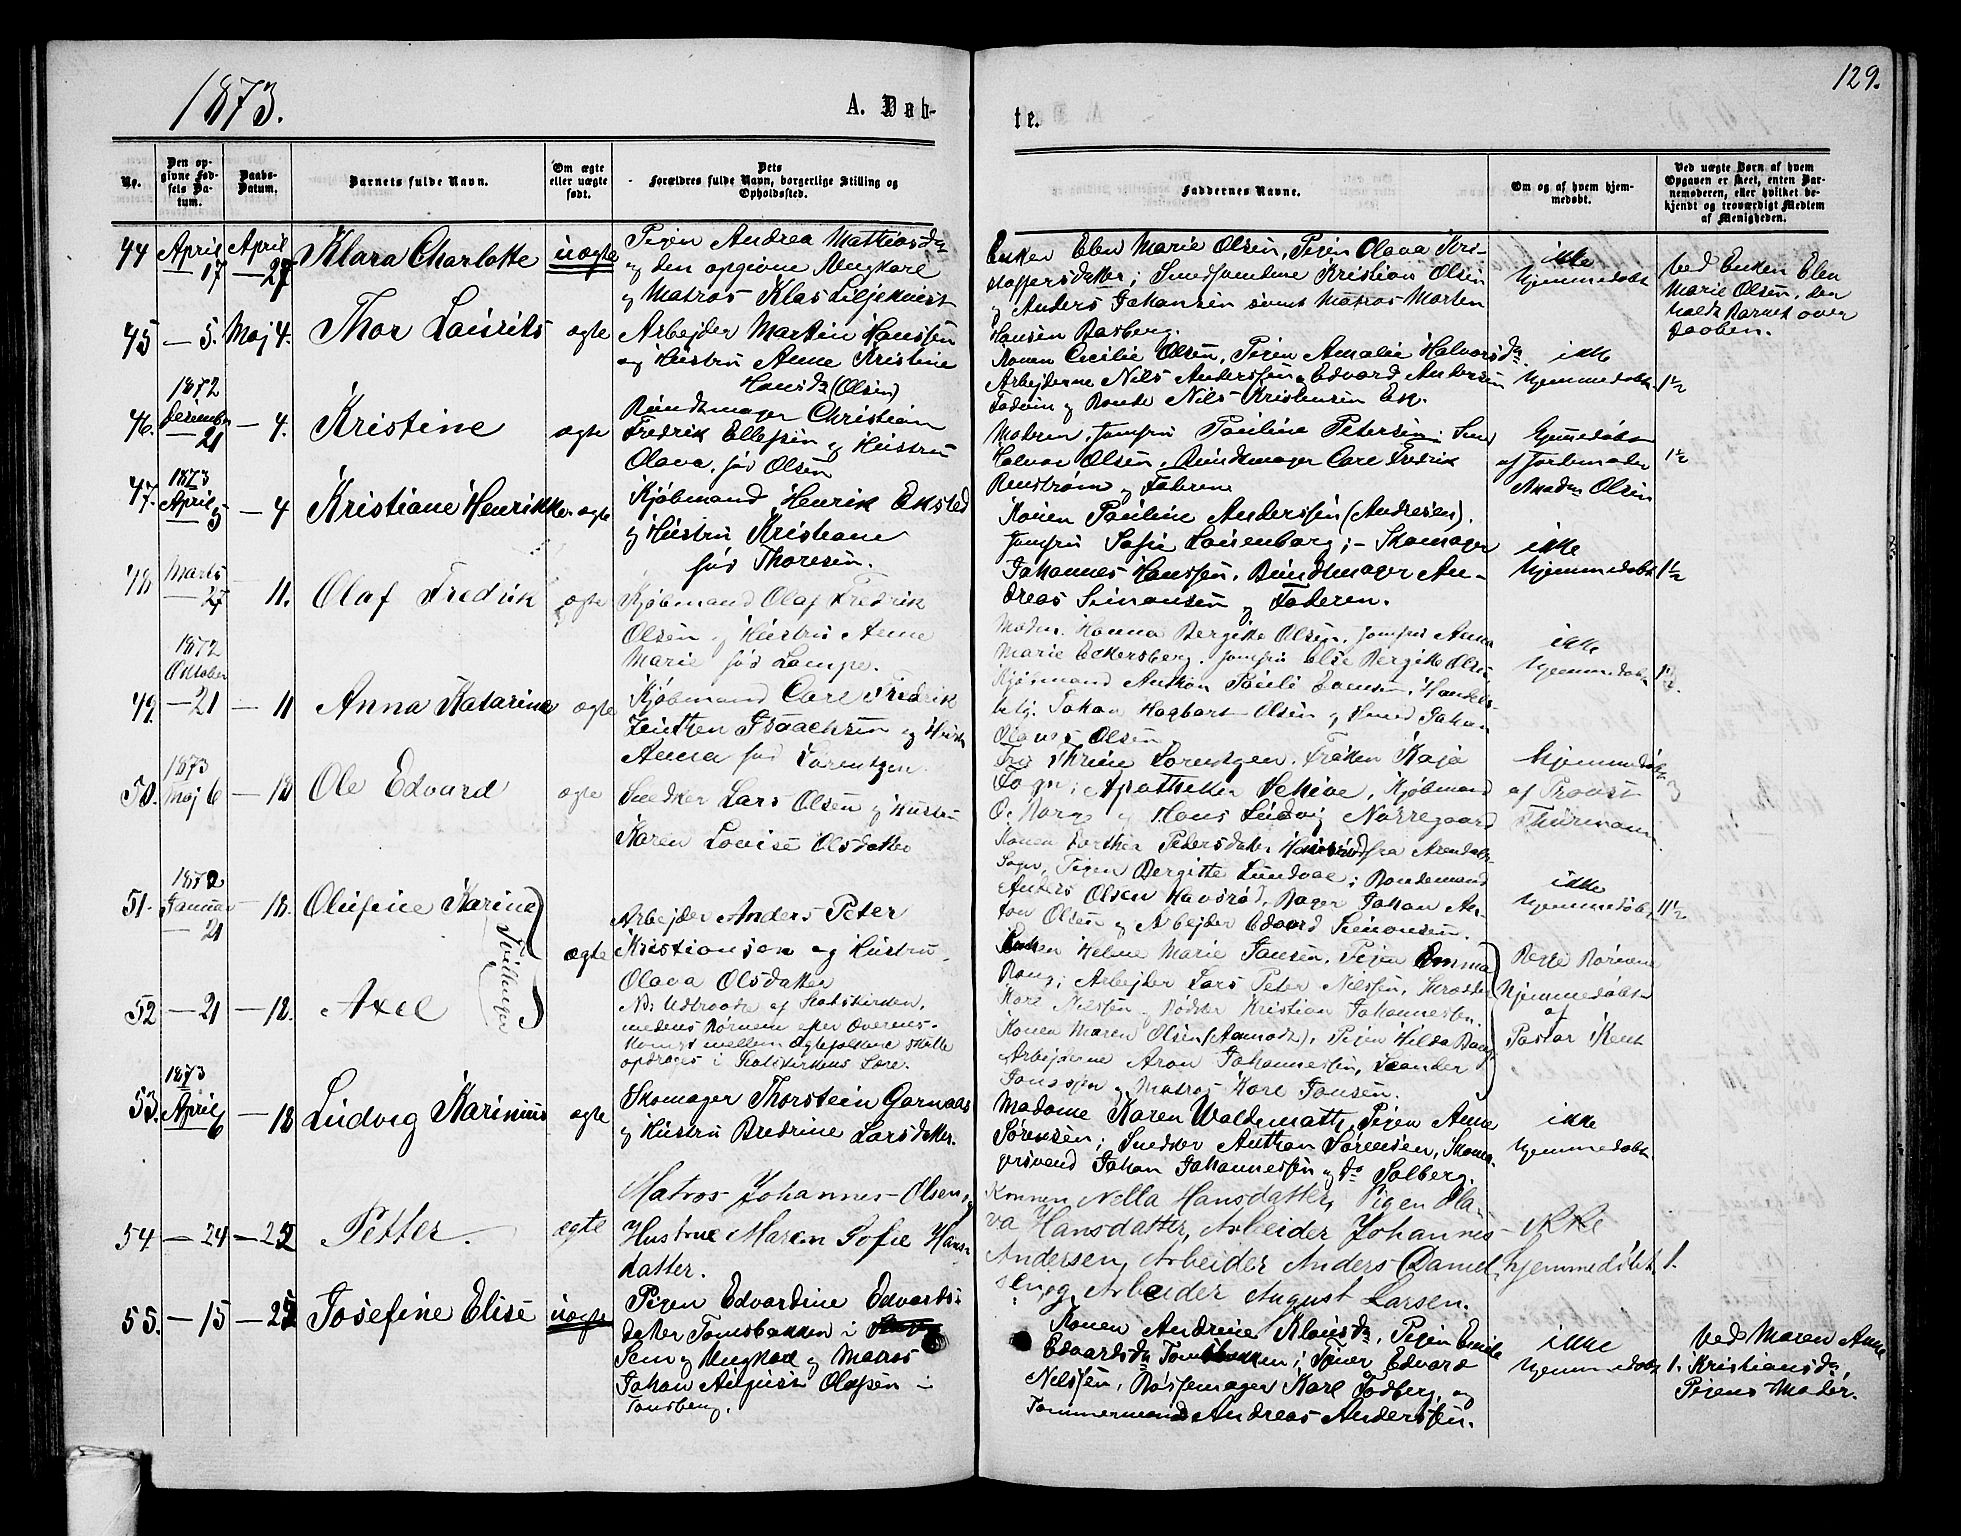 1873.
129.
A. Døb-
te.
No.
Den op-
givne Fød-
sels Da-
tum.
Daabs-
Datum.
Barnets fulde Navn.
Om ægte
eller uægte
født.
Dets
Forældres fulde Navn, borgerlige Stilling og
Opholdssted.
Faddernes Navne.
Om og af hvem hjem-
medøbt.
Ved uægte Børn af hvem
Opgaven er skeet, enten Bar-
nemoderen, eller hvilket be-
kjendt og troværdigt Medlem
af Menigheden.
44 April 17 April 27 Klara Charlotte uægte
Pigen Andrea Mathiasda
og den opgivne Ungkarl
og Matros Klas Liljekvist
Enken Elen Marie Olsen, Pigen Olava Kri-
stoffersdatter; Smedsvendene Kristian Olsen
og Anders Johansen samt Matros Morten
Hansen Basberg.
ikke
hjemmedøbt
Ved Enken Elen
Marie Olsen, den
holdt Barnet over
Daaben.
45 — 5. Maj 4. Thor Laurits ægte
Arbejder Martin Hanssen
og Hustru Anne Kristine
Hansda (Olsen)
Konen Cecilie Olsen, Pigen Amalie Halvorsda
Arbejderne Nils Anderssen, Edvard Andersen
Faderen og Bonde Nils Kristensen Ek.
ikke
hjemmedøbt
1½
1872
46. Desember 21 — 4. Kristine ægte
Bundtmager Christian
Fredrik Ellefsen og Hustru
Olava, fød Olsen
Moderen, Jomfru Pauline Petersen; Smed
Halvor Olsen, Bundtmager Carl Fredrik
Renstrøm og Faderen
hjemmedøbt
af Jordemoder
Madm Olsen
1½
1873
47. April 5 — 4 Kristiane Henrikke ægte
Kjøbmand Henrik Eksted
og Hustru Kristiane
fød Thoresen.
Konen Pauline Anderssen (Andresen).
Jomfru Sofie Lauenborg; - Skomager
Johannes Hanssen, Bundtmager An-
dreas Simonsen og Faderen.
ikke
hjemmedøbt
1½
48 Marts 27 11. Olaf Fredrik ægte
Kjøbmand Olaf Fredrik
Olsen og Hustru Anne
Marie fød Lampe.
Madm. Hanna Bergitte Olsen, Jomfru Anna
Marie Eckersberg. Jomfru Else Bergitte Olsen
Kjøbmand Anthon Pauli Hansen, Handels-
betj. Johan Hagbart Olsen og Smed Johan
Olaves Olsen
ikke
hjemmedøbt
1872
Oktober
49 — 21 — 11 Anna Katarina ægte
Kjøbmand Carl Fredrik
Zeuthen Isaachsen og Hustru
Anna fød Lorentzen
Fru Thrine Lorentzen. Frøken Kaja
Fogn; Apotheker Schive, Kjøbmand
O. Borge og Hans Ludvig Nørregaard
hjemmedøbt
af Provst
Thürmann.
3
1873
50. Maj 6 — 18 Ole Edvard ægte
Snedker Lars Olsen og Hustru
Karen Lovise Olsdatter
Konen Dorthea Pedersdatter Havsrød fra Arendals
Sogn, Pigen Bergitte Lundvall; Bondemand
Anders Olsen Havsrød, Bager Johan An-
ton Olsen og Arbejder Edvard Simonsen.
ikke
hjemmedøbt
1½
1872
51. Januar 21 — 18. Olufine Karine ægte
Tvillinger
Arbejder Anders Peter
Kristiansen og Hustru
Olava Olsdatter
NB. Udtraadt af Statskirken,
medens Børnene efter Overens-
komst mellem Ægtefolkene skulle
opdrages i Statskirkens Lære.
Enken Helene Marie Jansen, Pigen Emma
Bang; Arbejder Lars Peter Nilssen, Skrædder
Karl Nilssen, Bødker Kristian Johannesen.
Begge Børnene
hjemmedøbt
af
Pastor Kent
52 — 21 — 18. Axel
Konen Maren Olsen (Aamodt), Pigen Hilda Bang
Arbejderne Aron Johannessen, Leander
Jonassen og Matros Karl Jansen.
1873
53. April 6 — 18 Ludvig Karinius ægte
Skomager Thorstein Gornaas
og Hustru Bredrine Larsdatter.
Madame Karen Waldemath, Pigen Anne
Sørensen; Snedker Anthon Sørensen, Skoma-
gersvend Johan Johannessen og do Solberg.
ikke
hjemmedøbt.
54 — 24 — 25 Petter. ægte
Matros Johannes Olsen, og
Hustrue Maren Sofie Hans-
datter.
Konnen Nella Hansdatter, Pigen Ola-
va Hansdatter, Arbeider Johannes
Andersen, Arbeider Anders Daniel-
sen, og Arbeider August Larsen.
ikke
hjemmedøbt
1.
55. — 15 — 25 Josefine Elise uægte
Pigen Edvardine Edvards-
datter Tomsbakken i
Sem og Ungkarl og Matros
Johan August Olafsen i
Tønsberg.
Konen Andrine Klausda, Pigen Emilie
Edvardsda Tomsbakken; Tjener Edvard
Nilssen, Bøssemager Karl Fodberg, og
Tømmermand Andreas Anderssen.
ikke
hjemmedøbt
1.
Ved Maren Anne
Kristiansda,
Pigens Moder.